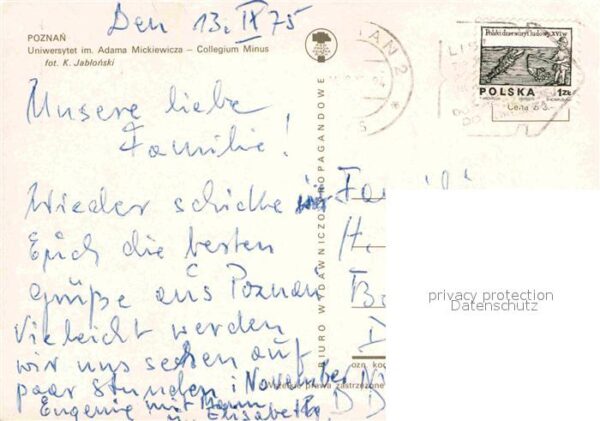 Den 13. IX 75
POZNAŃ
Uniwersytet im. Adama Mickiewicza – Collegium Minus
fot. K. Jabłoński
Unsere liebe
Familie!
Wieder schicke wir
Euch die besten
Grüße aus Poznan
Vieleicht werden
wir uns sechen auf
paar Stunden i November
Eugenie mit Mann
u. Elisabeth
BIURO WYDAWNICZO-PROPAGANDOWE
Polski drzeworyt ludowy XVI w
POLSKA 1ZŁ
Cena zł
Fa
H.
B
D
D D
ozn kod
Wszelkie prawa zastrzeżone
privacy protection
Datenschutz